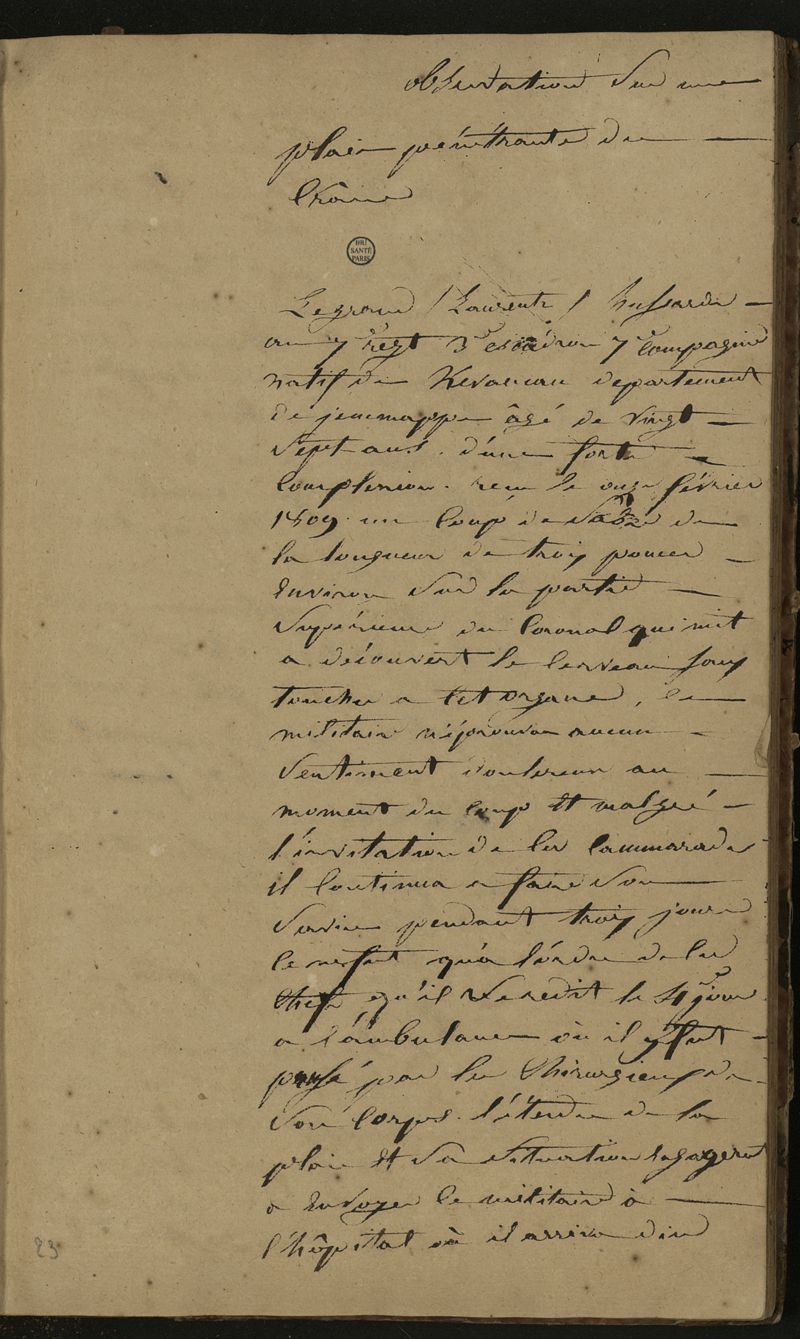 observation Sur une
plaie pénétrante du
Crâne
BIU
SANTÉ
PARIS
Legrand / Laurent / hussard
au 7e regt 3e escadron 7e Compagnie
natif de departement
de jemmappe âgé de Vingt
Sept ans. d'une forte
Complexion. recu le onze février
1809 un Coup de Sabre de
la longueur de trois pouces
Environ Sur la partie
Supérieure du Coronal qui mit
a découvert le Cerveau sans
toucher a Cet organe, Ce
militaire n'éprouva aucun
Sentiment douloureux au
moment du Coup Et malgré
l'invitation de Ces Cammarades
il Continua a faire Son
Service pendant trois jours
Ce ne fut qu'a l'ordre de Ces
Chefs qu'il Se rendit le 4e jour
a l'ambulance où il y fut
pansé par les Chirurgiens de
Son Corps. l'étendue de la
plaie Et Sa Situation Engagerent
a Envoyer Ce militaire à
l'hôpital où il arriva
23